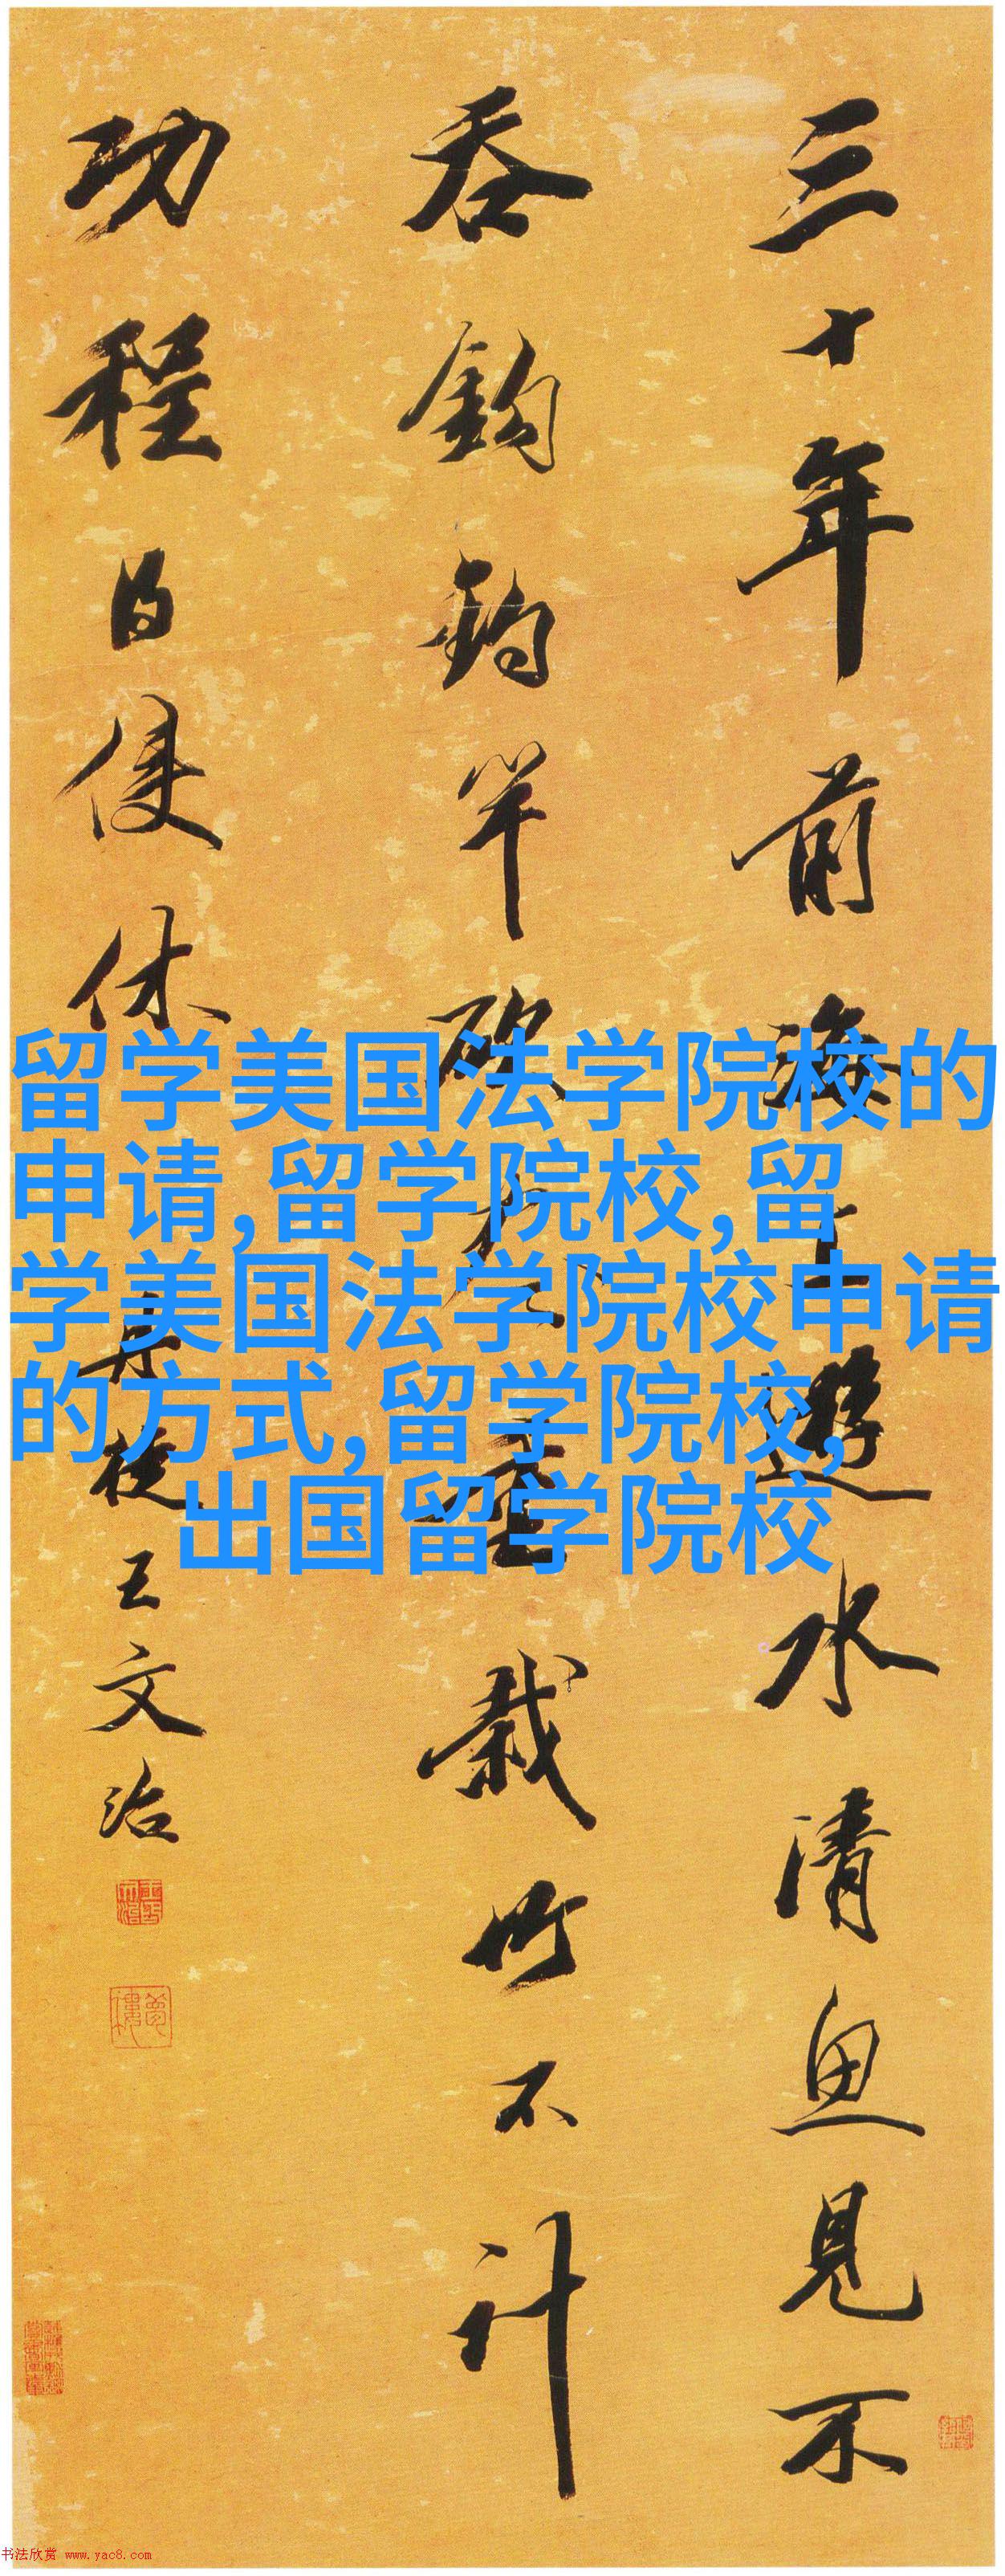 三十年前海上遊水清魚見不
吞鈎釣竿斫盡重栽竹不計
功程得便休
丹徒王文治
留学美国法学院校的
申请,留学院校,留
学美国法学院校申请
的方式,留学院校,
出国留学院校
书法欣赏 www.yac8.com